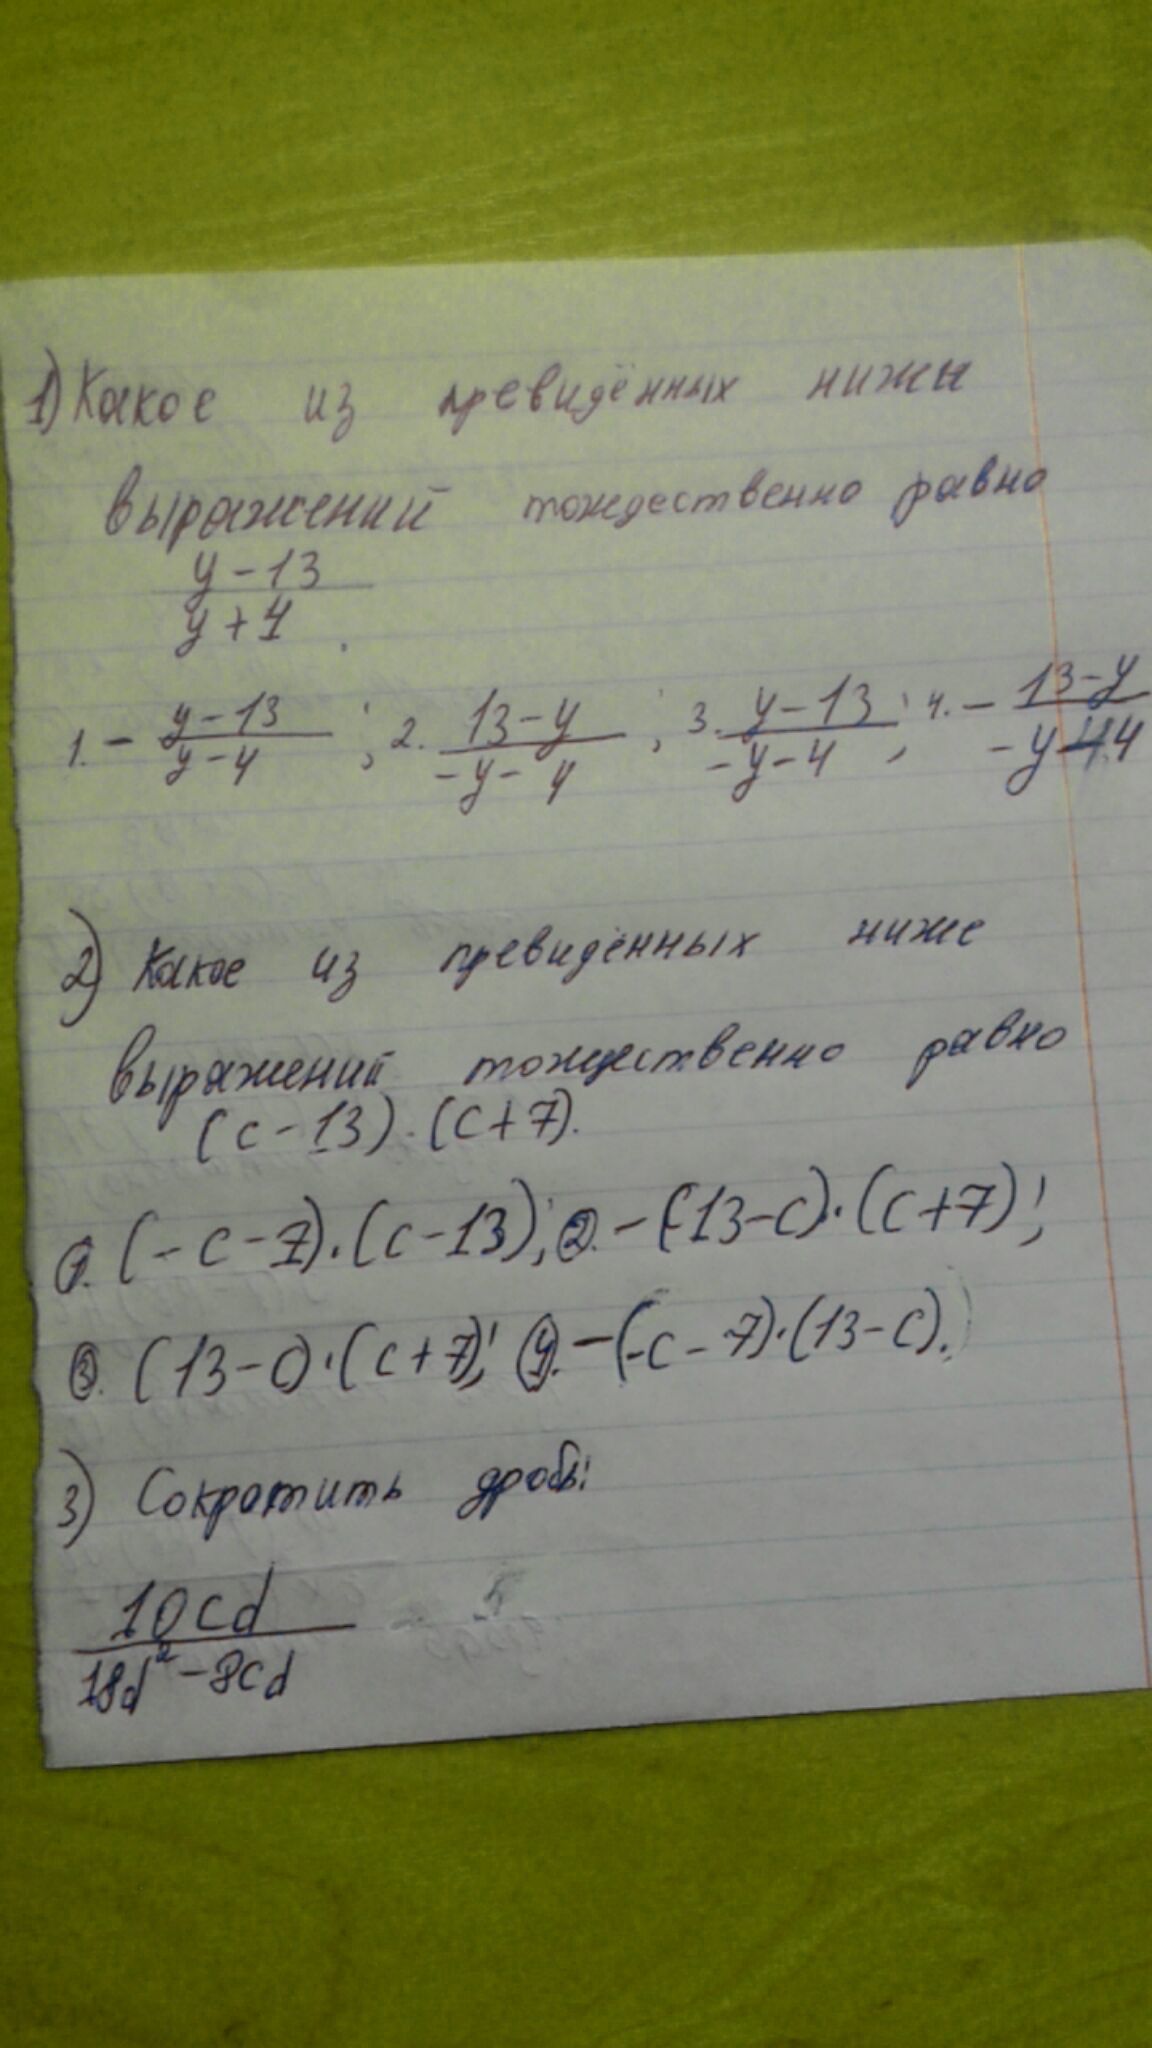 1) Какое из превидённых нижы
выражений тождественно равно
y-13
y+4 .
1. - y-13 / y-4 ; 2. 13-y / -y-4 ; 3. y-13 / -y-4 ; 4. - 13-y / -y-4
2) Какое из превидённых ниже
выражений тождественно равно
(c-13)·(c+7).
1. (-c-7)·(c-13); 2. -(-13-c)·(c+7);
3. (13-c)·(c+7); 4. -(-c-7)·(13-c).
3) Сократить дробь:
10cd
18d²-8cd